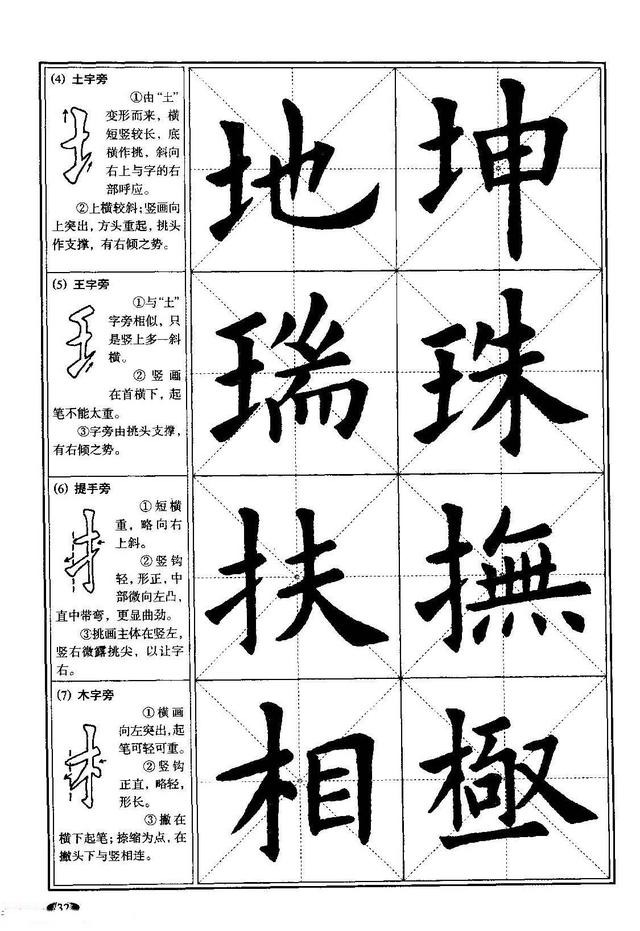 (4) 土字旁
①由“土”
变形而来，横
短竖较长，底
横作挑，斜向
右上与字的右
部呼应。
②上横较斜；竖画向
上突出，方头重起，挑头
作支撑，有右倾之势。
地 坤
(5) 王字旁
①与“土”
字旁相似，只
是竖上多一斜
横。
②竖画
在首横下，起
笔不能太重。
③字旁由挑头支撑，
有右倾之势。
瑞 珠
(6) 提手旁
①短横
重，略向右
上斜。
②竖钩
轻，形正，中
部微向左凸，
直中带弯，更显曲劲。
③挑画主体在竖左，
竖右微露挑尖，以让字
右。
扶 撫
(7) 木字旁
①横画
向左突出，起
笔可轻可重。
②竖钩
正直，略轻，
形长。
③撇在
横下起笔；捺缩为点，在
撇头下与竖相连。
相 極
32